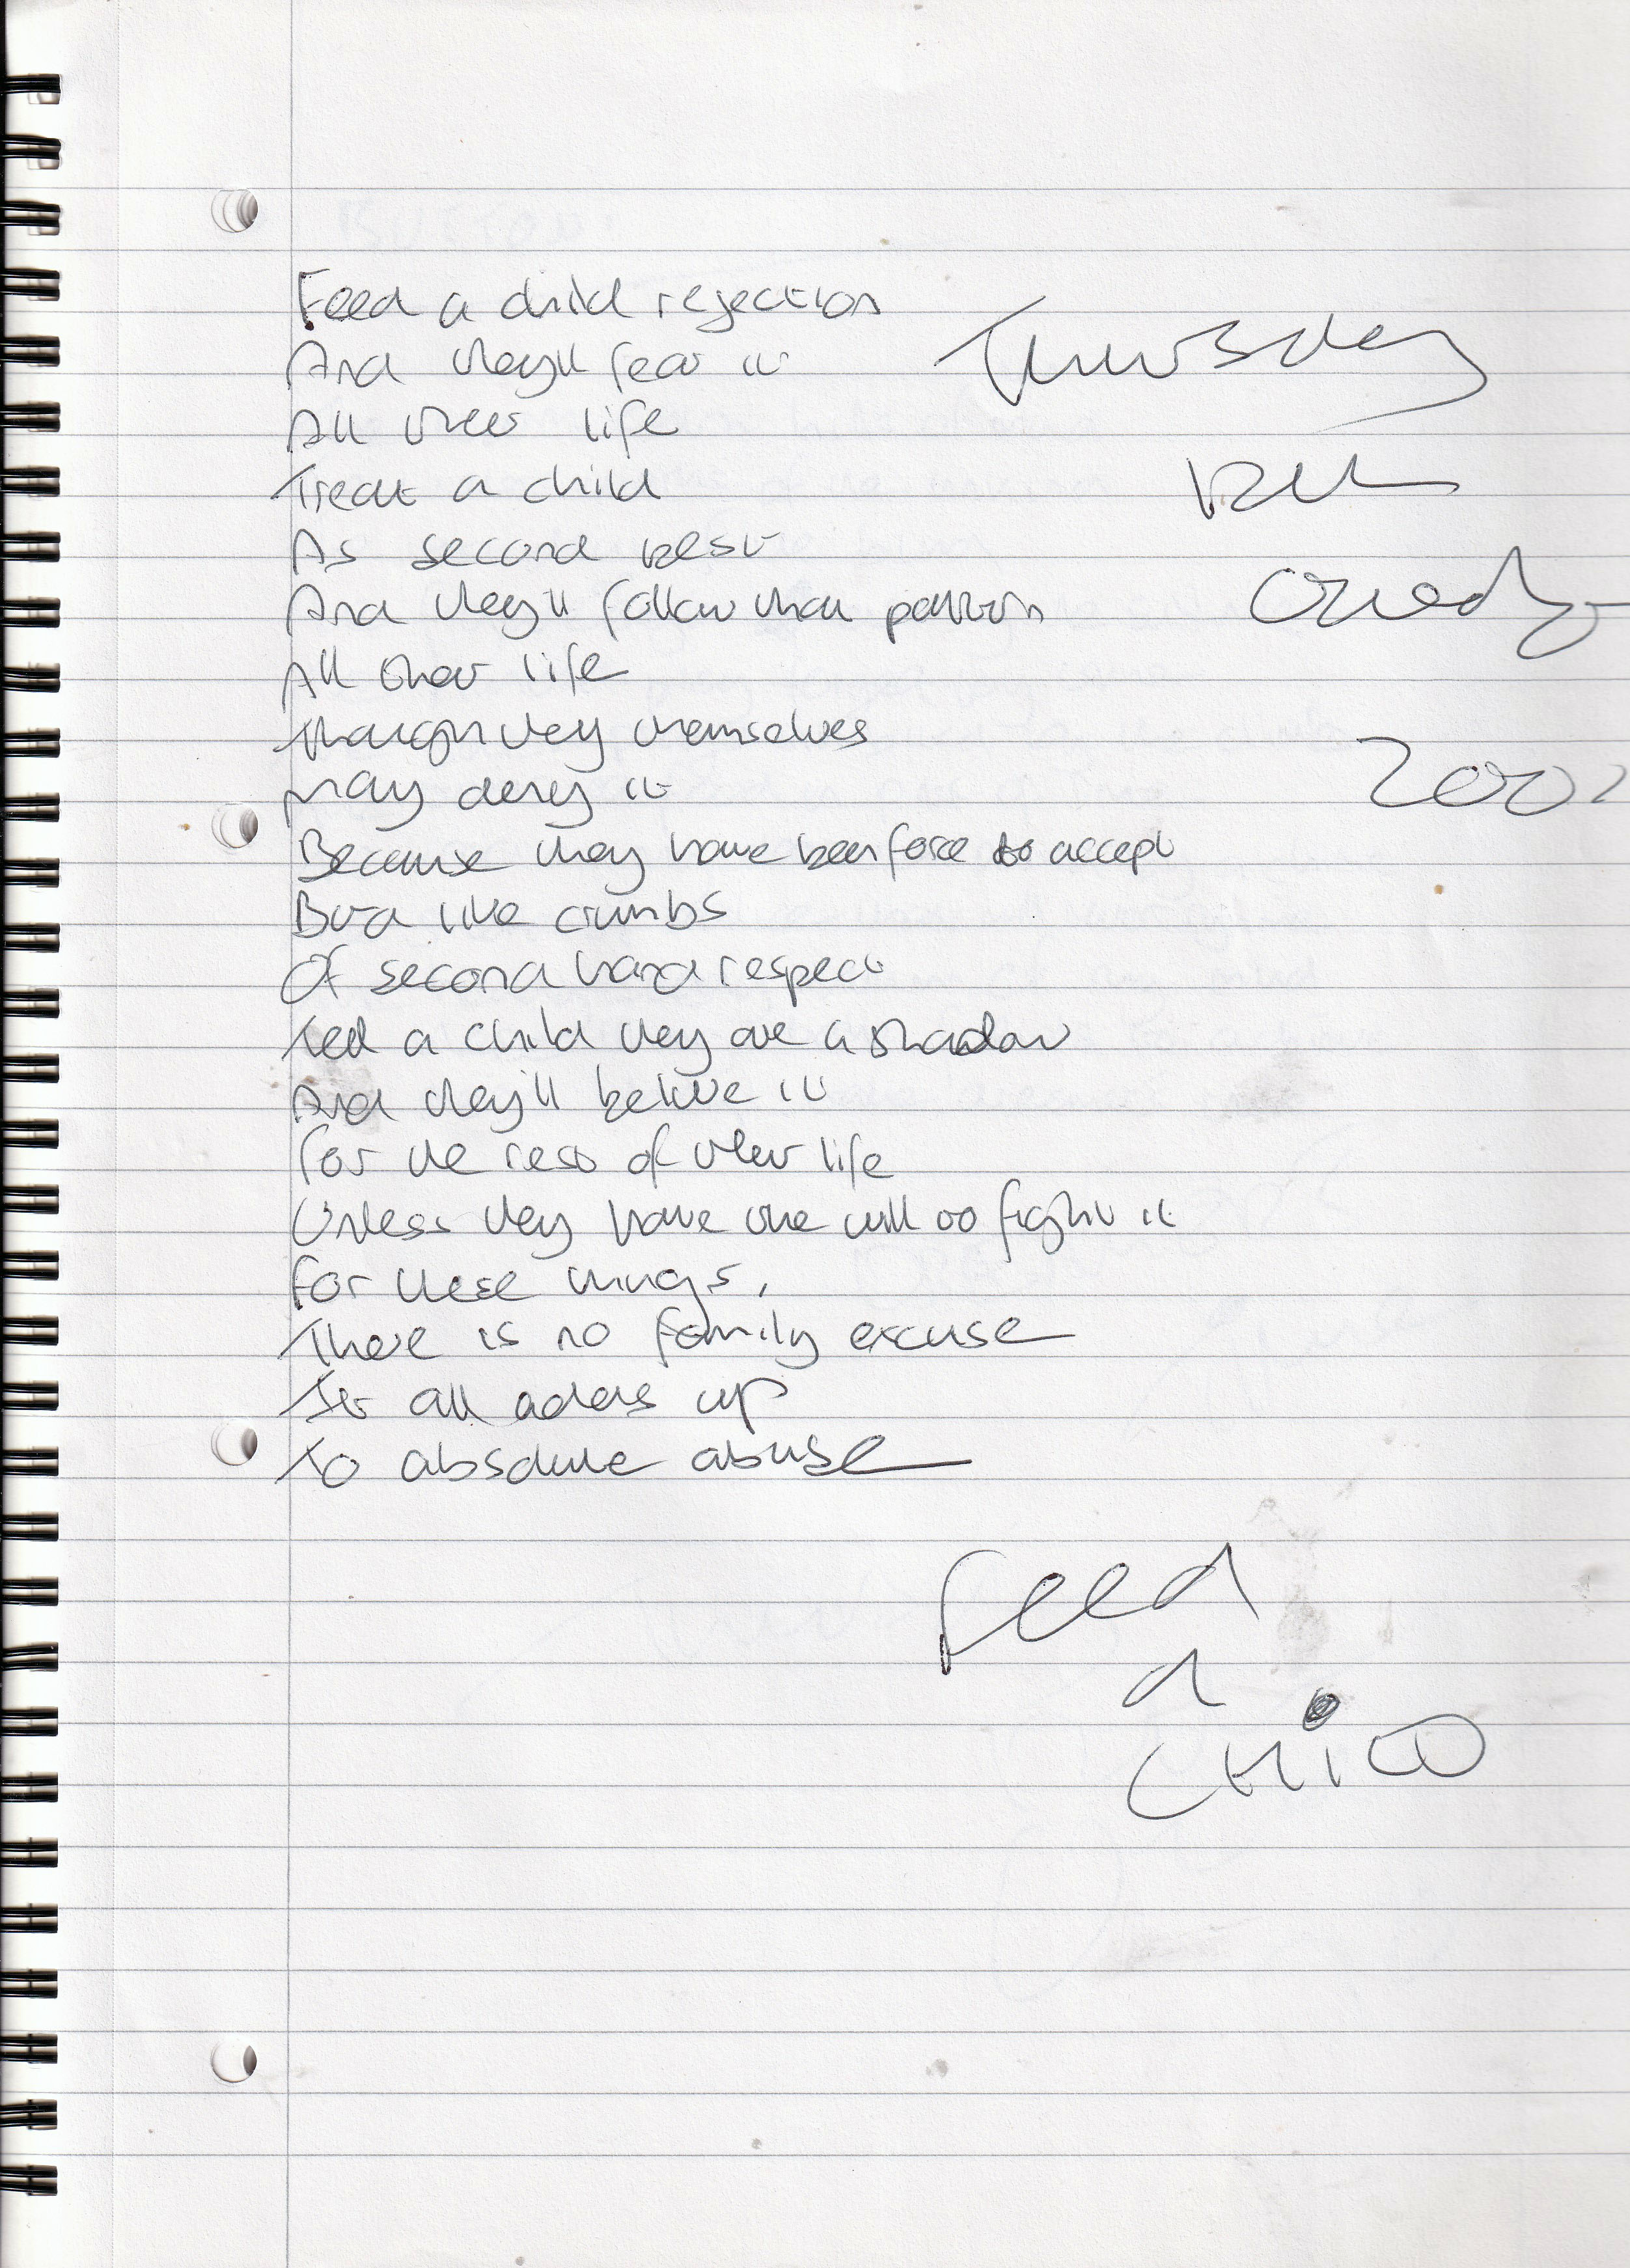 Feed a child rejection
And they'll fear it
All their life
Treat a child
As second best
And they'll follow that pattern
All their life
Though they themselves
May deny it
Because they have been force to accept
Bird like crumbs
Of second hand respect
Tell a child they are a shadow
And they'll belive it
For the rest of their life
Unless they have the will to fight it
For these things,
There is no family excuse
It all adds up
To absolute abuse
Thursday
2002
Feed
a
CHILD